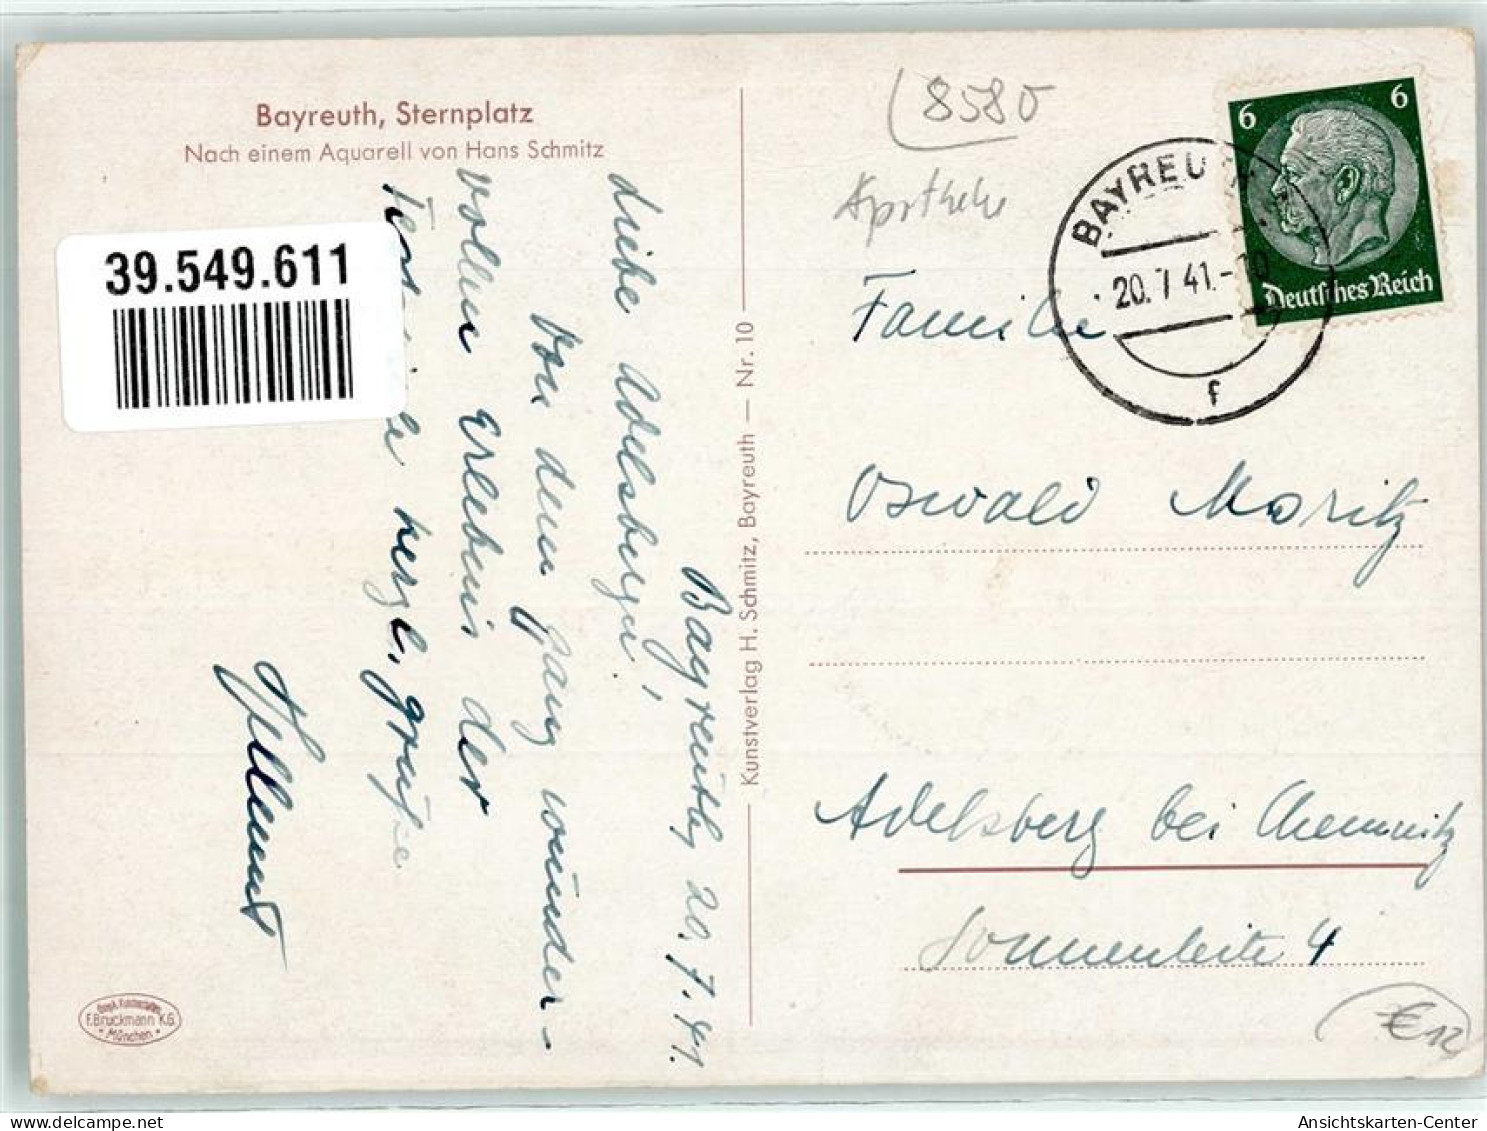 Bayreuth, Sternplatz
Nach einem Aquarell von Hans Schmitz
39.549.611
Bayreuth, 20.7.41.
Liebe Adelsberger!
Von dem ganz wunder-
vollen Erlebnis der
Festspiele herzl. Grüße
Hellmut
Kunstverlag H. Schmitz, Bayreuth — Nr. 10
F. Bruckmann K.G.
München
8580
Apotheke
6 6
Deutsches Reich
BAYREUTH
20.7.41.
f
Familie
Oswald Moritz
Adelsberg bei Chemnitz
Sonnenleite 4
€12
Ansichtskarten-Center